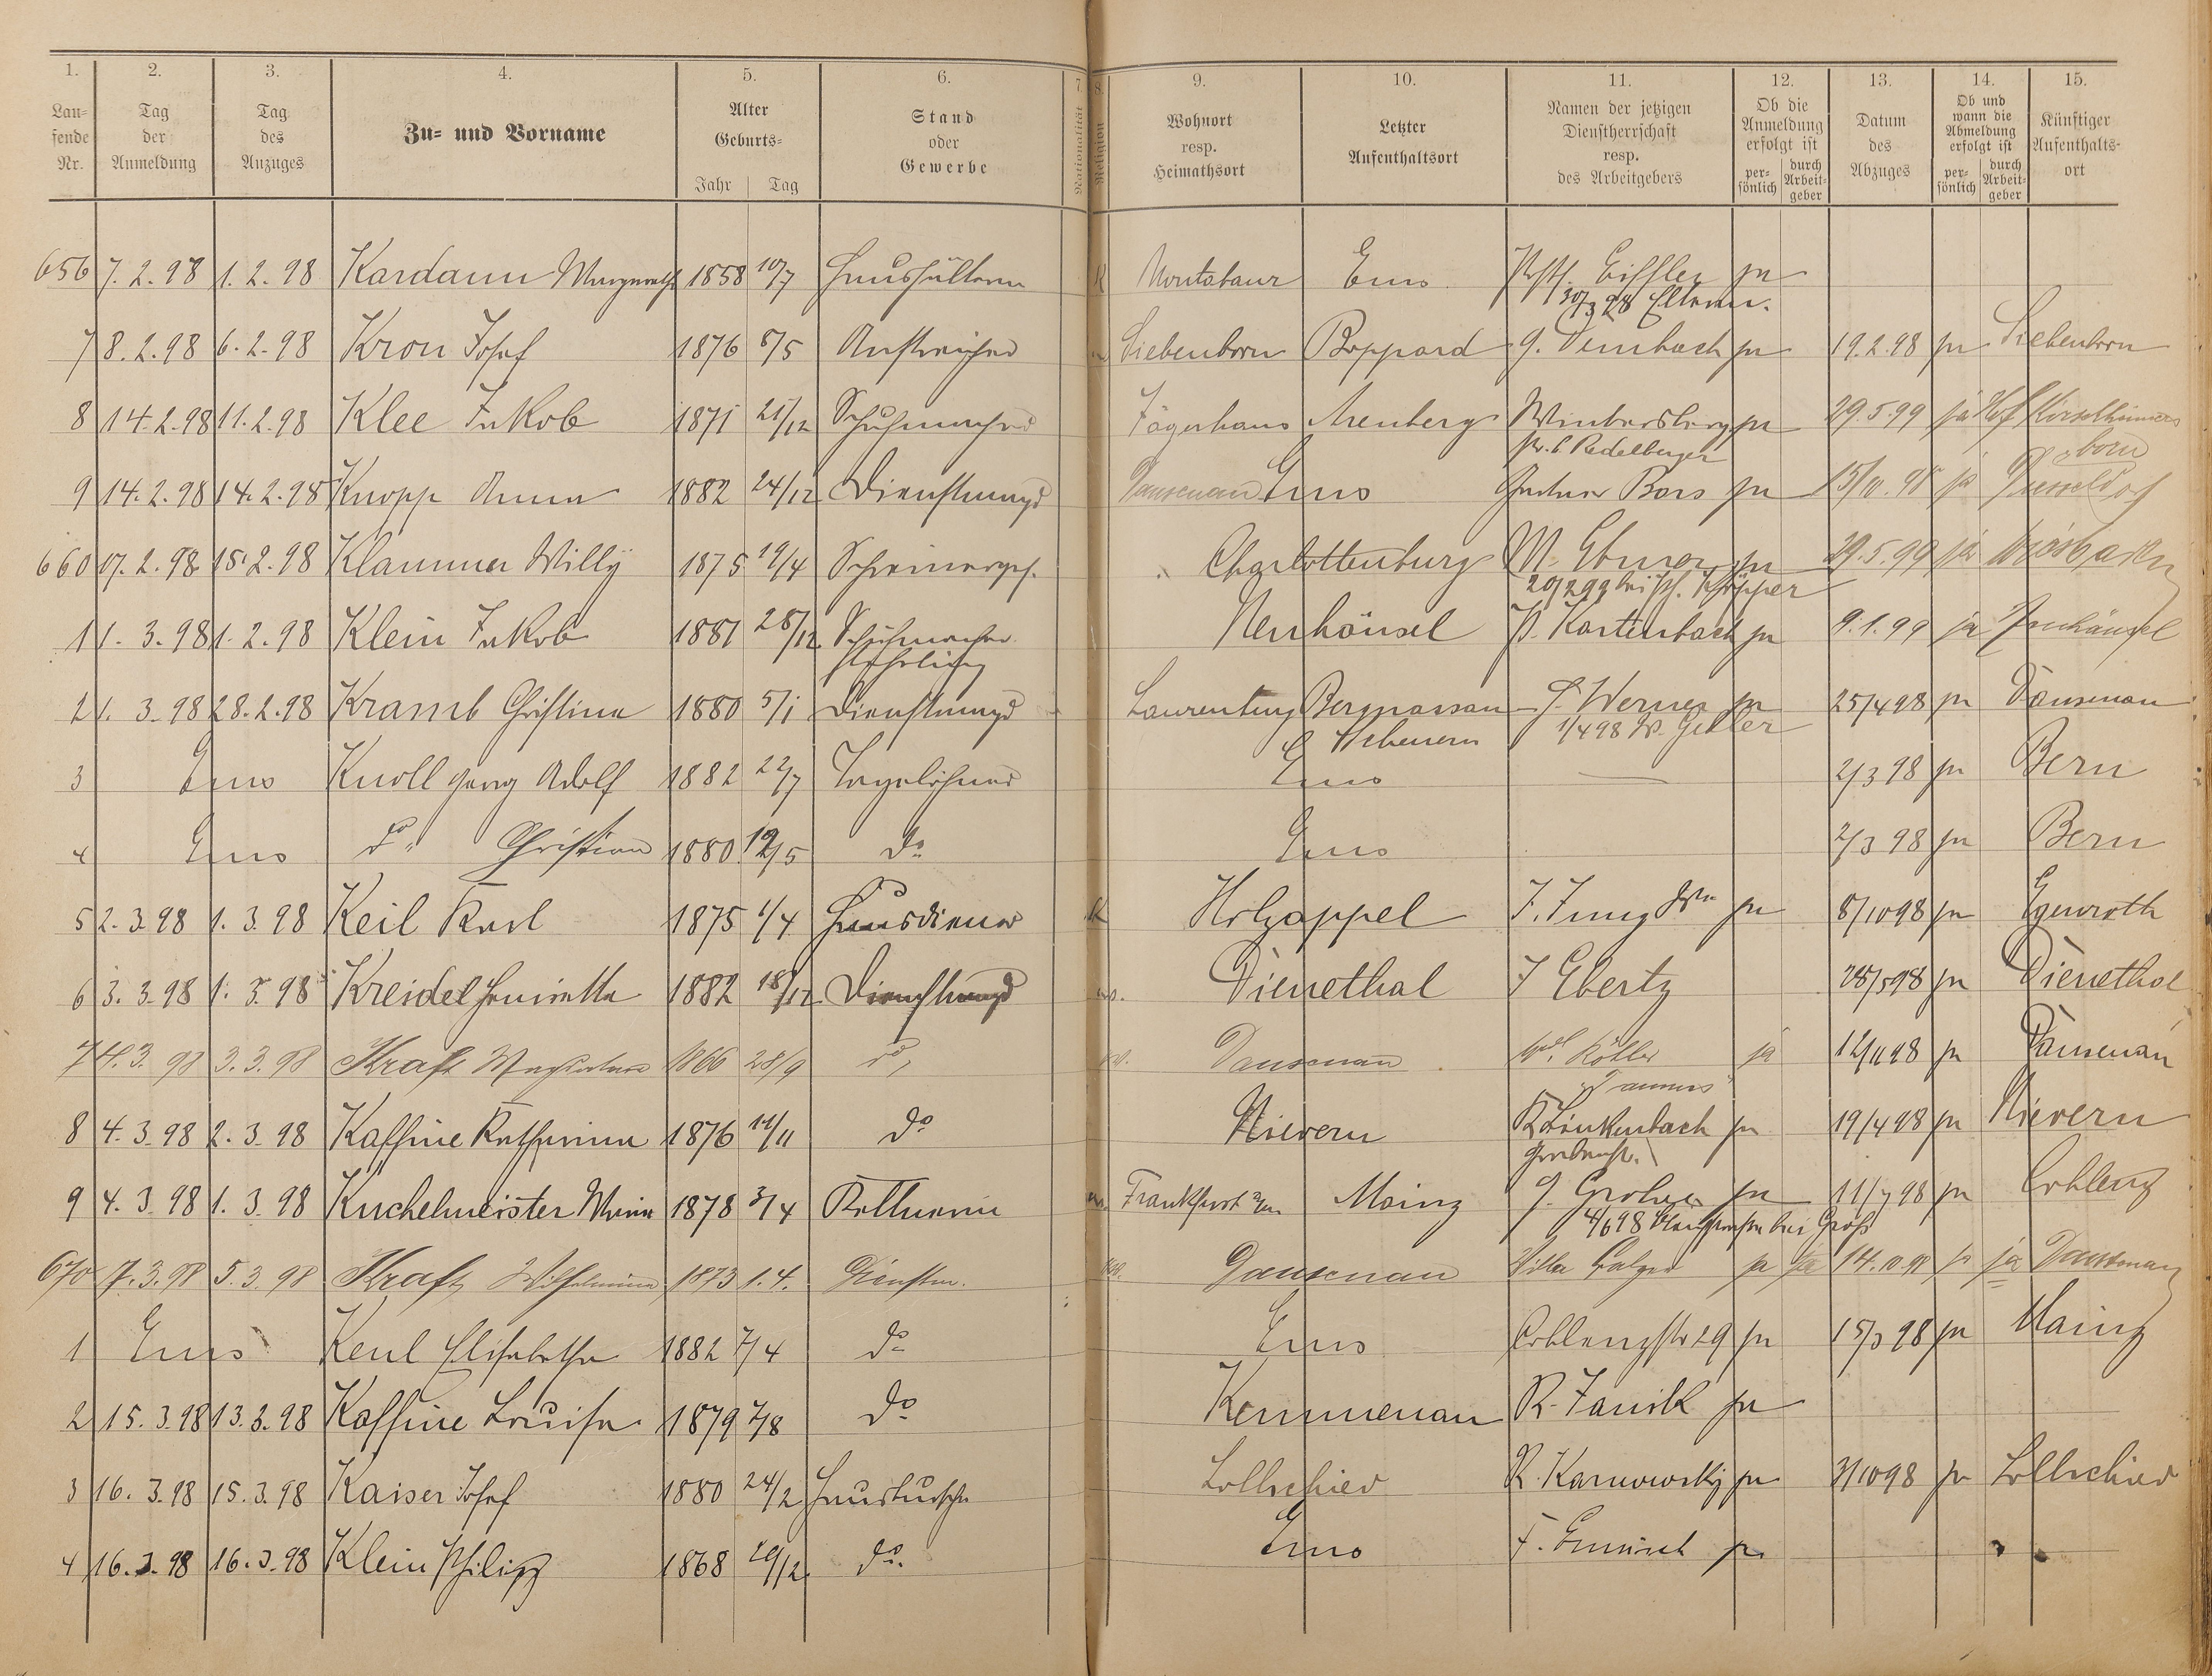 1. 2. 3. 4. 5. 6. 7. 8. 9. 10. 11. 12. 13. 14. 15.
Lau-
fende
Nr.
Tag
der
Anmeldung
Tag
des
Anzuges
Zu- und Vorname
Alter
Geburts-
Jahr Tag
Stand
oder
Gewerbe
Nationalität
Religion
Wohnort
resp.
Heimathsort
Letzter
Aufenthaltsort
Namen der jetzigen
Dienstherrschaft
resp.
des Arbeitgebers
Ob die
Anmeldung
erfolgt ist
per-
sönlich
durch
Arbeit-
geber
Datum
des
Abzuges
Ob und
wann die
Abmeldung
erfolgt ist
per-
sönlich
durch
Arbeit-
geber
Künftiger
Aufenthalts-
ort
656 7.2.98 1.2.98 Kardann Margareth 1858 10/7 Haushälterin K Montabaur Ems Eiffler ja
Eltern.
7 8.2.98 6.2.98 Kron Josef 1876 6/5 Anstreicher Siebenborn Boppard G. Dembach ja 19.2.98 ja Siebenborn
8 14.2.98 11.2.98 Klee Jakob 1871 21/12 Schuhmacher Jägerhaus Arenberg Wintersberg ja 29.5.99 ja Hof
Redelberger born
9 14.2.98 14.2.98 Knopp Anna 1882 24/12 Dienstmagd Dausenau Ems Bors ja 15/10.98 ja Duesseldorf
660 17.2.98 15.2.98 Klammer Willy 1875 19/4 Schreinergeh. Charlottenburg M. Ebner ja 29.5.99 ja Wiesbaden
20/2 99 bei
1 1.3.98 1.2.98 Klein Jakob 1881 28/12 Schuhmacher Neuhäusel P. Kartenbach ja 9.1.99 ja Neuhäusel
Lehrling
2 1.3.98 28.2.98 Kramb Christine 1880 5/1 Dienstmagd Laurenburg Bergnassau J. Werner ja 25/4 98 ja Dausenau
Scheuern 1/4 98 W. Geller
3 Ems Knoll Georg Adolf 1882 22/7 Tagelöhner Ems — 2/3 98 ja Bern
4 Ems do Christian 1880 19/5 do Ems 2/3 98 ja Bern
5 2.3.98 1.3.98 Keil Karl 1875 1/4 Hausdiener K Holzappel J. Jung Ww ja 8/10 98 ja Egenroth
6 3.3.98 1.3.98 Kreidel Henriette 1882 18/12 Dienstmagd ev. Dienethal J Ebertz 28/5 98 ja Dienethal
7 4.3.98 3.3.98 Kraft 1866 28/9 do ev. Dausenau Köller ja 12/11 98 ja Dausenau
"Taunus"
8 4.3.98 2.3.98 Kaffine Katharina 1876 11/11 do Nievern R Linkenbach ja 19/4 98 ja Nievern
Grabenstr.
9 4.3.98 1.3.98 Kuchelmeister Maria 1878 3/4 Kellnerin Frankfurt a/m Mainz ja 11/7 98 ja Coblenz
4/6 98 bei Groß
670 7.3.98 5.3.98 Kraft Wilhelmine 1873 1.4. Dienstm. ev. Dausenau Villa Balzer ja ja 14.10.98 ja ja Dausenau
1 Ems Keul Elisabetha 1882 7/4 do Ems Coblenzstr 29 ja 15/3 98 ja Mainz
2 15.3.98 13.3.98 Kaffine Louise 1879 7/8 do Kemmenau R. Janik ja
3 16.3.98 15.3.98 Kaiser Josef 1880 24/2 Hausbursche Lollschied R. Karnowsky ja 3/10 98 ja Lollschied
4 16.3.98 16.3.98 Klein Philipp 1868 20/12 do. Ems F. ja